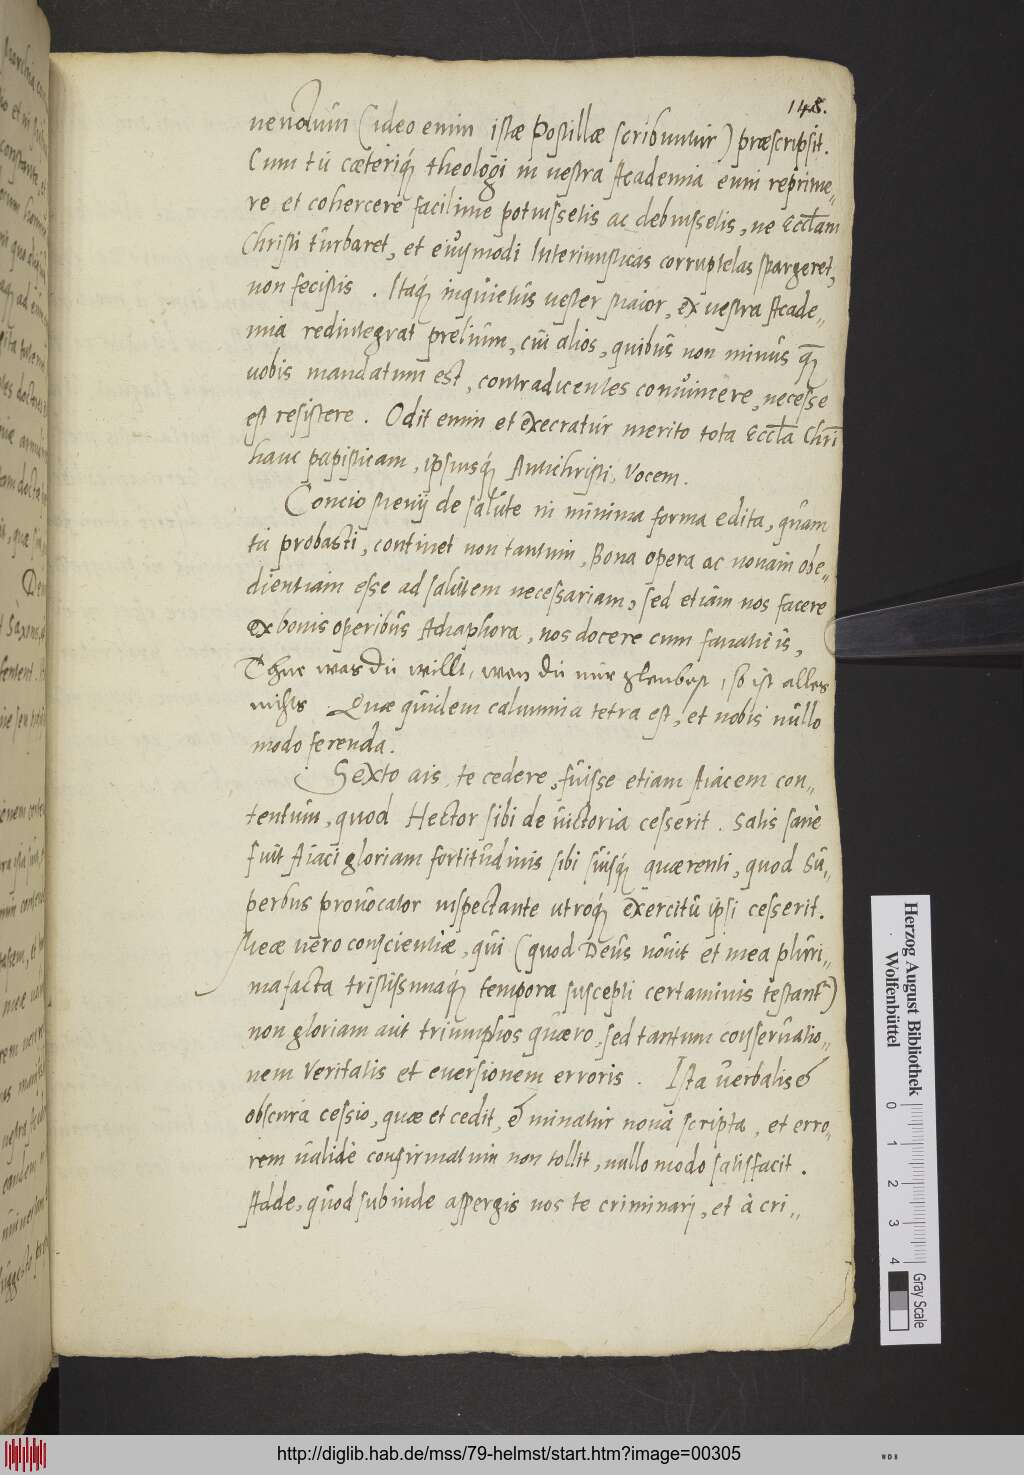 148.
uendum (ideo enim istæ Postillæ scribuntur) præscripsit.
Cum tu cæteriq́; theologi in uestra Academia eum reprime„
re et cohercere facilime potuissetis ac debuissetis, ne Eccl̄am
Christi turbaret, et eiusmodi Interimisticas corruptelas spargeret,
non fecistis. Itaq́; inquietus uester Maior, ex uestra Acade„
mia redintegrat prelium, cui alios, quibus non minus q̄;
uobis mandatum est, contradicentes conuincere, necesse
est resistere. Odit enim et execratur merito tota Eccl̄a Chri̅
hanc papisticam, ipsiusq́; Antichristi, Vocem.
Concio Menij de salute in minima forma edita, quam
tu probasti, continet non tantum, Bona opera ac nouam obe„
dientiam esse ad salutem necessariam, sed etiam nos facere
ex bonis operibus Adiaphora, nos docere cum fanaticis,
Thue was du willt, wen du nur gleubest, so ist alles
nichts. Quæ quidem calumnia tetra est, et nobis nullo
modo ferenda.
Sexto ais, te cedere, fuisse etiam Aiacem con„
tentum, quod Hector sibi de uictoria cesserit. Satis sanè
fuit Aiaci gloriam fortitudinis sibi suisq́; quærenti, quod su„
perbus prouocator inspectante utroq́; exercitu ipsi cesserit.
Meæ uero conscientiæ, qui (quod Deus nouit et mea pluri„
ma facta tristissimaq́; tempora suscepti certaminis testant̃)
non gloriam aut triumphos quæro, sed tantum conseruatio„
nem Veritatis et euersionem erroris. Ista uerbalis &
obscura cessio, quæ et cedit, & minatur noua scripta, et erro„
rem ualidè confirmatum non tollit, nullo modo satisfacit.
Adde, quod subinde aspergis nos te criminari, et à cri„
Herzog August Bibliothek
Wolfenbüttel
0 1 2 3 4
Gray Scale
http://diglib.hab.de/mss/79-helmst/start.htm?image=00305